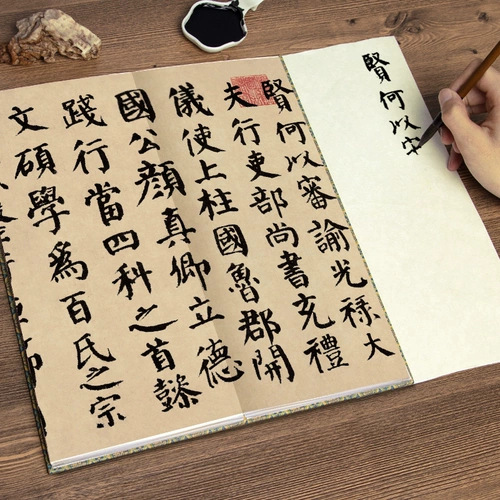 賢何以
賢何以審諭光祿大
夫行吏部尚書充禮
儀使上柱國魯郡開
國公顏真卿立德
踐行當四科之首懿
文碩學爲百氏之宗